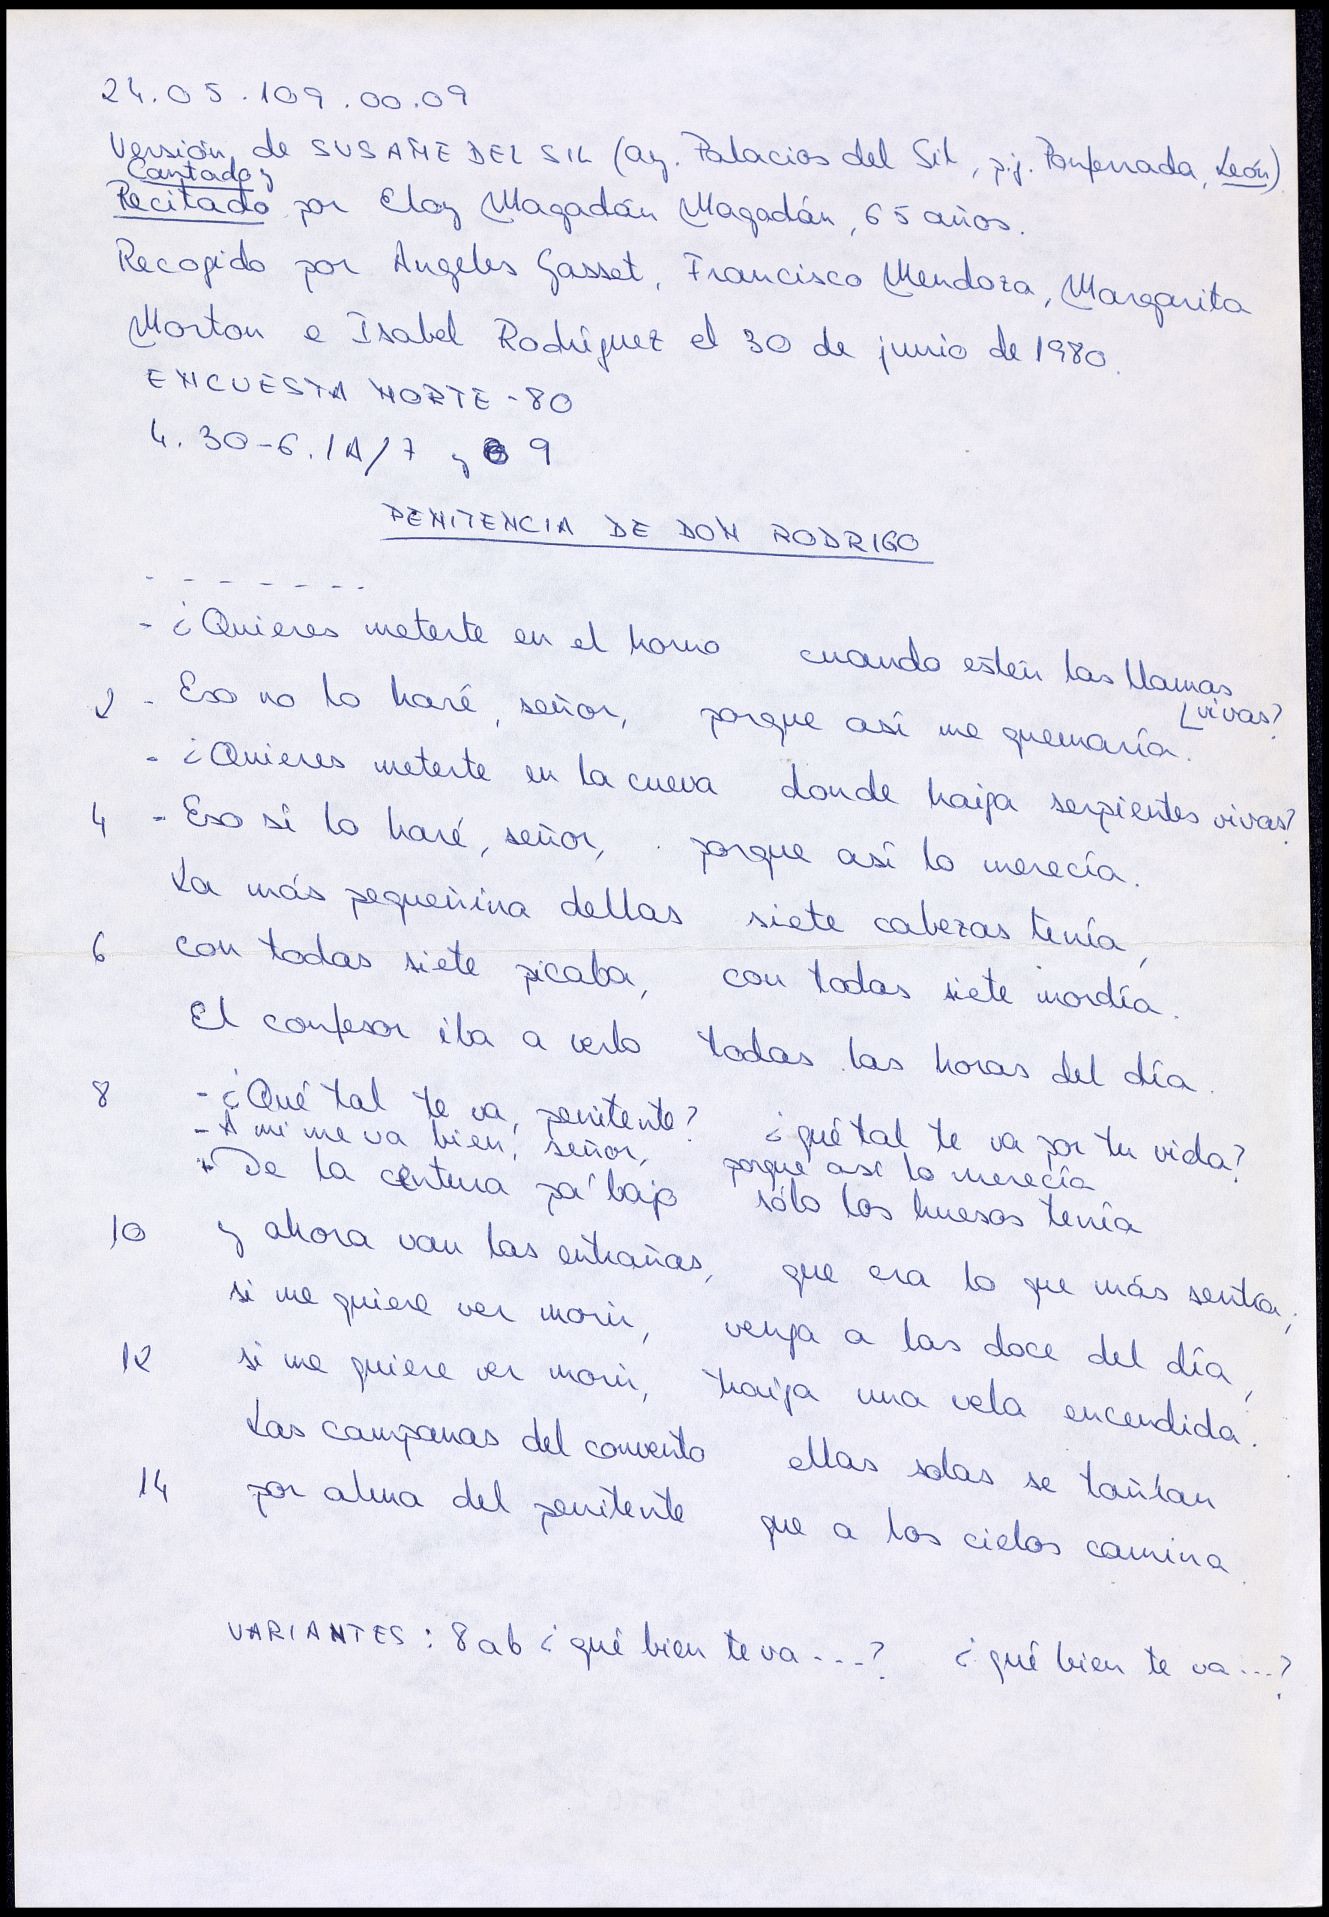 24.05.109.00.09
Versión de SUSAÑE DEL SIL (ay. Palacios del Sil, p.j. Ponferrada, León)
Cantado y
Recitado por Eloy Magadán Magadán, 65 años.
Recogido por Angeles Gasset, Francisco Mendoza, Margarita
Morton e Isabel Rodríguez el 30 de junio de 1980.
ENCUESTA NORTE-80
4. 30-6.1A/7 y 9
PENITENCIA DE DON RODRIGO
- - - - - - -
- ¿Quieres meterte en el horno cuando estén las llamas
vivas?
2 - Eso no lo haré, señor, porque así me quemaría.
- ¿Quieres meterte en la cueva donde haiga serpientes vivas?
4 - Eso sí lo haré, señor, porque así lo merecía.
La más pequeñina dellas siete cabezas tenía,
6 con todas siete picaba, con todas siete mordía.
El confesor iba a verlo todas las horas del día.
8 - ¿Qué tal te va, penitente? ¿qué tal te va por tu vida?
- A mi me va bien, señor, porque así lo merecía
- De la centura pa'bajo sólo los huesos tenía
10 y ahora van las entrañas, que era lo que más sentía;
si me quiere ver morir, venga a las doce del día,
12 si me quiere ver morir, traiga una vela encendida.
Las campanas del convento ellas solas se tañían
14 por alma del penitente que a los cielos camina.
VARIANTES: 8ab ¿qué bien te va...? ¿qué bien te va...?